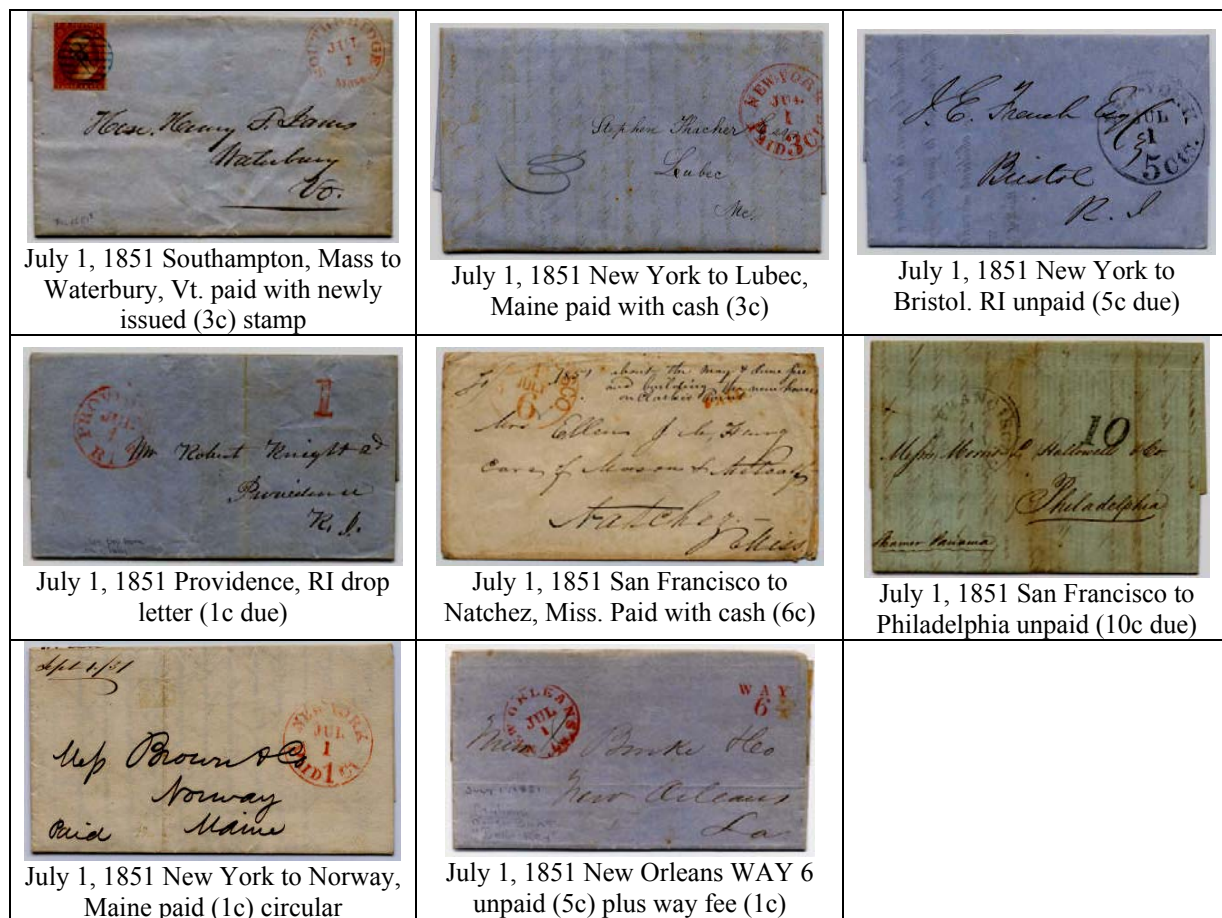 SOUTHBRIDGE
JUL
1
Mass.
Hon. Henry F. Janes
Waterbury
Vt.
July 1, 1851 Southampton, Mass to
Waterbury, Vt. paid with newly
issued (3c) stamp
NEW-YORK
JUL
1
PAID 3 Cts
Stephen Thacher Esq
Lubec
Me.
July 1, 1851 New York to Lubec,
Maine paid with cash (3c)
NEW-YORK
JUL
1
5 Cts.
J. E. French Esq
Bristol
R. I
July 1, 1851 New York to
Bristol. RI unpaid (5c due)
1
JUL
1
R.I.
Mr Robert Knight 2d
Providence
R. I.
July 1, 1851 Providence, RI drop
letter (1c due)
1851 about the May & June fire
and building the new house
JULY
6
Mrs Ellen
Care of Mason & Metcalf
Natchez
Miss
July 1, 1851 San Francisco to
Natchez, Miss. Paid with cash (6c)
10
Messrs Morris Hallowell & Co
Philadelphia
Steamer Panama
July 1, 1851 San Francisco to
Philadelphia unpaid (10c due)
Sept 1/51
NEW-YORK
JUL
1
PAID 1 Ct
Mess Brown & Co
Norway
Paid Maine
July 1, 1851 New York to Norway,
Maine paid (1c) circular
NEW ORLEANS
JUL
1
WAY
6
Burke & Co
New Orleans
La
July 1, 1851 New Orleans WAY 6
unpaid (5c) plus way fee (1c)